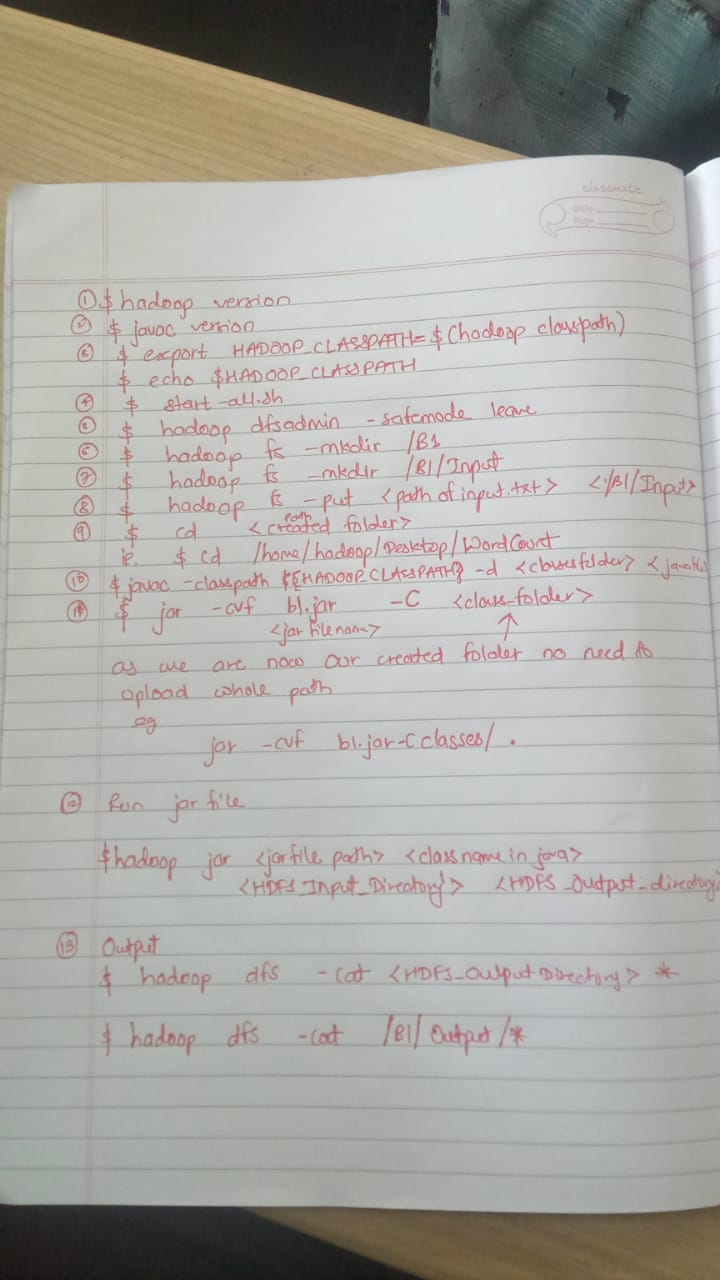 classmate
Date
Page
① $ hadoop version
② $ javac version
③ $ export HADOOP_CLASSPATH= $(hadoop classpath)
$ echo $HADOOP_CLASSPATH
④ $ start-all.sh
⑤ $ hadoop dfsadmin -safemode leave
⑥ $ hadoop fs -mkdir /B1
⑦ $ hadoop fs -mkdir /B1/Input
⑧ $ hadoop fs -put <path of input.txt> </B1/Input>
⑨ $ cd <created path folder>
ie. $ cd /home/hadoop/Desktop/WordCount
⑩ $ javac -classpath ${HADOOP_CLASSPATH} -d <classesfolder>
⑪ $ jar -cvf b1.jar -C <class-folder>
<jar filename>
as we are now our created folder no need to
upload whole path
eg
jar -cvf b1.jar -C classes/ .
⑫ Run jar file
$hadoop jar <jarfile path> <class name in java>
<HDFS_Input_Directory> <HDFS_Output_directory
⑬ Output
$ hadoop dfs -cat <HDFS_Output Directory> *
$ hadoop dfs -cat /B1/Output/*